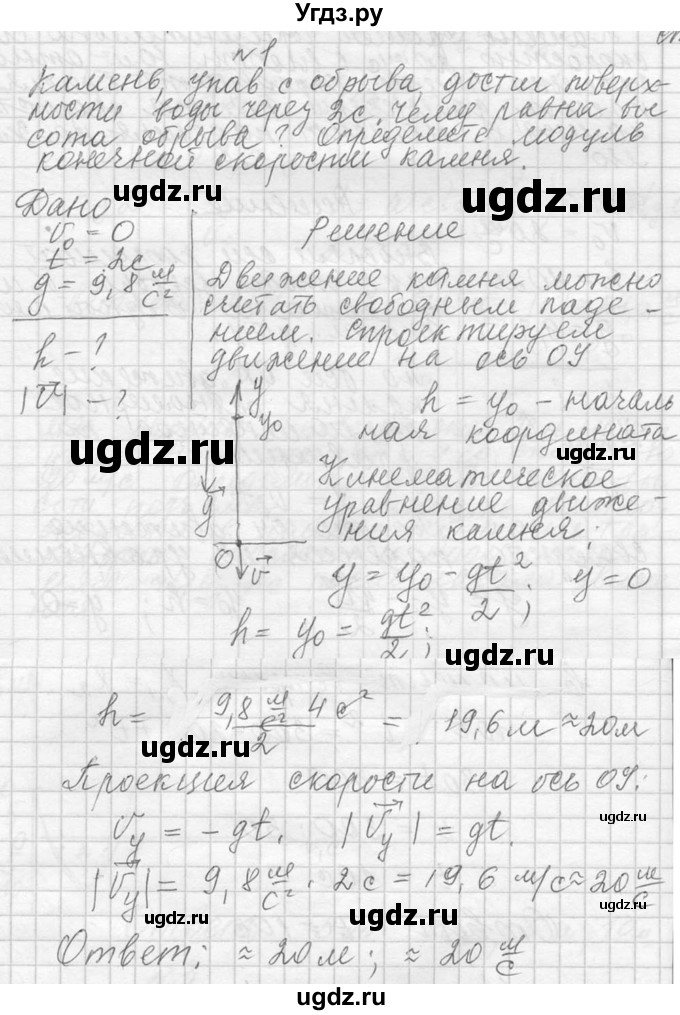 Угдз.ру
№1
Камень, упав с обрыва, достиг поверх-
ности воды через 2с. Чему равна вы
сота обрыва? Определите модуль
конечной скорости камня.
ugdz.ru ugdz.ru
Дано
v₀ = 0
t = 2с
g = 9,8 м/с²
h - ?
|v⃗| - ?
Решение
Движение камня можно
считать свободным паде -
нием. Спроектируем
движение на ось ОУ
h = y₀ - началь
ная координата
y
y₀
g⃗
O
v⃗
ugdz.ru ugdz.ru
Кинематическое
уравнение движе-
ния камня:
y = y₀ - gt²/2; y = 0
h = y₀ = gt²/2;
ugdz.ru
h = 9,8 м/с² 4с²/2 = 19,6м ≈ 20м
ugdz.ru
Проекция скорости на ось ОУ:
ugdz.ru
v_y = -gt. |v⃗_y| = gt.
|v⃗_y| = 9,8 м/с² · 2с = 19,6 м/с ≈ 20 м/с
ugdz.ru ugdz.ru
Ответ: ≈ 20м; ≈ 20 м/с
ugdz.ru
ugdz.ru